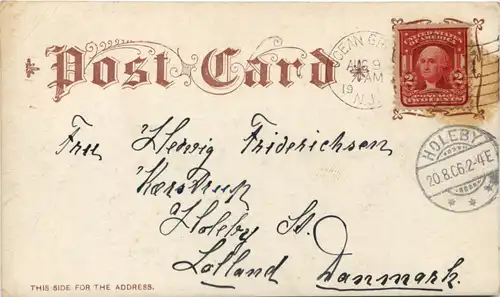 Post Card
OCEAN GR
AUG 9
AM
19
N.J.
UNITED STATES
OF AMERICA
2 2
POSTAGE
TWO CENTS
HOLEBY
20.8.06.2-4E
Fru Hedwig Friderichsen
Kærstrup
Holeby St.
Lolland Danmark.
THIS SIDE FOR THE ADDRESS.